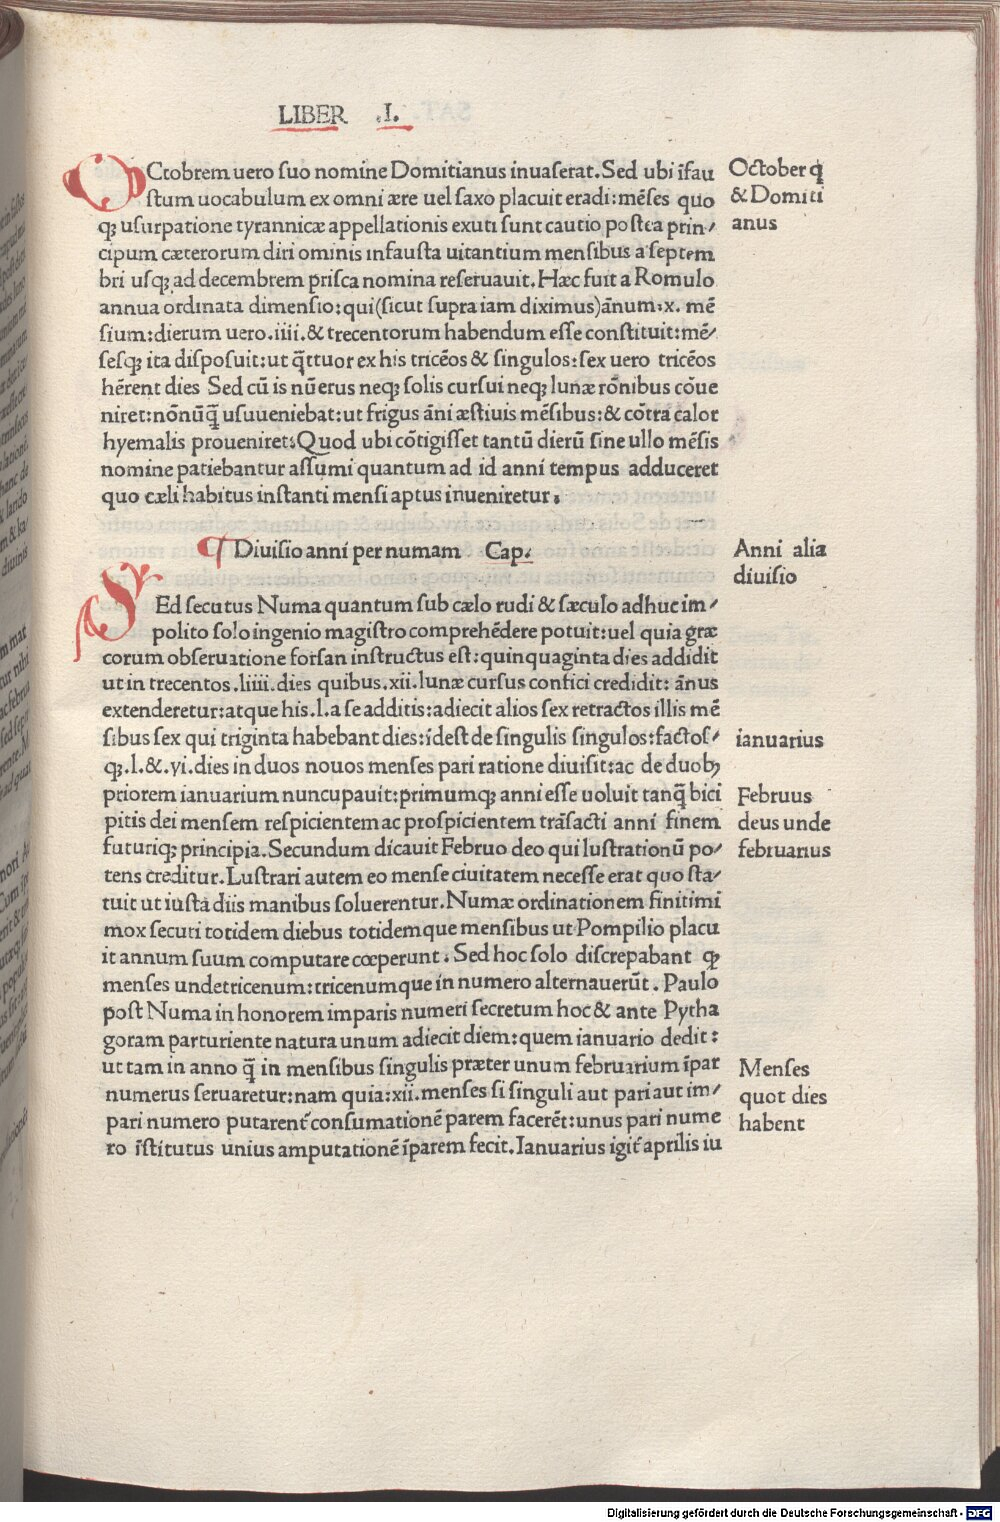 LIBER .I.
OCtobrem uero ſuo nomine Domitianus inuaſerat. Sed ubi ĩfau
ſtum uocabulum ex omni ære uel ſaxo placuit eradi: mẽſes quo
qꝫ uſurpatione tyrannicæ appellationis exuti ſunt cautio poſtea prin⸗
cipum cæterorum diri ominis infauſta uitantium menſibus a ſeptem
bri uſqꝫ ad decembrem priſca nomina reſeruauit. Hæc fuit a Romulo
annua ordinata dimenſio: qui (ſicut ſupra iam diximus) ãnum .x. mẽ
ſium: dierum uero .iiii. & trecentorum habendum eſſe conſtituit: mẽ⸗
ſeſqꝫ ita diſpoſuit: ut q̃ttuor ex his tricẽos & ſingulos: ſex uero tricẽos
hẽrent dies Sed cũ is nũerus neqꝫ ſolis curſui neqꝫ lunæ rõnibus cõue
niret: nõnũq̃ uſuueniebat: ut frigus ãni æſtiuis mẽſibus: & cõtra calor
hyemalis proueniret: Quod ubi cõtigiſſet tantũ dierũ ſine ullo mẽſis
nomine patiebantur aſſumi quantum ad id anni tempus adduceret
quo cæli habitus inſtanti menſi aptus inueniretur.
¶ Diuiſio anni per numam Cap.
SEd ſecutus Numa quantum ſub cælo rudi & ſæculo adhuc im⸗
polito ſolo ingenio magiſtro comprehẽdere potuit: uel quia græ
corum obſeruatione forſan inſtructus eſt: quinquaginta dies addidit
ut in trecentos .liiii. dies quibus .xii. lunæ curſus confici credidit: ãnus
extenderetur: atque his .l. a ſe additis: adiecit alios ſex retractos illis mẽ
ſibus ſex qui triginta habebant dies: ideſt de ſingulis ſingulos: factoſ⸗
qꝫ .l. &. vi. dies in duos nouos menſes pari ratione diuiſit: ac de duobꝫ
priorem ianuarium nuncupauit: primumqꝫ anni eſſe uoluit tanq̃ bici
pitis dei menſem reſpicientem ac proſpicientem trãſacti anni finem
futuriqꝫ principia. Secundum dicauit Februo deo qui luſtrationũ po⸗
tens creditur. Luſtrari autem eo menſe ciuitatem neceſſe erat quo ſta⸗
tuit ut iuſta diis manibus ſoluerentur. Numæ ordinationem finitimi
mox ſecuti totidem diebus totidemque menſibus ut Pompilio placu
it annum ſuum computare cœperunt. Sed hoc ſolo diſcrepabant qꝫ
menſes undetricenum: tricenumque in numero alternauerũt. Paulo
poſt Numa in honorem imparis numeri ſecretum hoc & ante Pytha
goram parturiente natura unum adiecit diem: quem ianuario dedit:
ut tam in anno q̃ in menſibus ſingulis præter unum februarium ĩpar
numerus ſeruaretur: nam quia: xii. menſes ſi ſinguli aut pari aut im⸗
pari numero putarent᷑ conſumationẽ parem facerẽt: unus pari nume
ro ĩſtitutus unius amputationẽ ĩparem fecit. Ianuarius igit᷑ aprilis iu
October q̃
& Domiti
anus
Anni alia
diuiſio
ianuarius
Februus
deus unde
februarius
Menſes
quot dies
habent
Digitalisierung gefördert durch die Deutsche Forschungsgemeinschaft - DFG